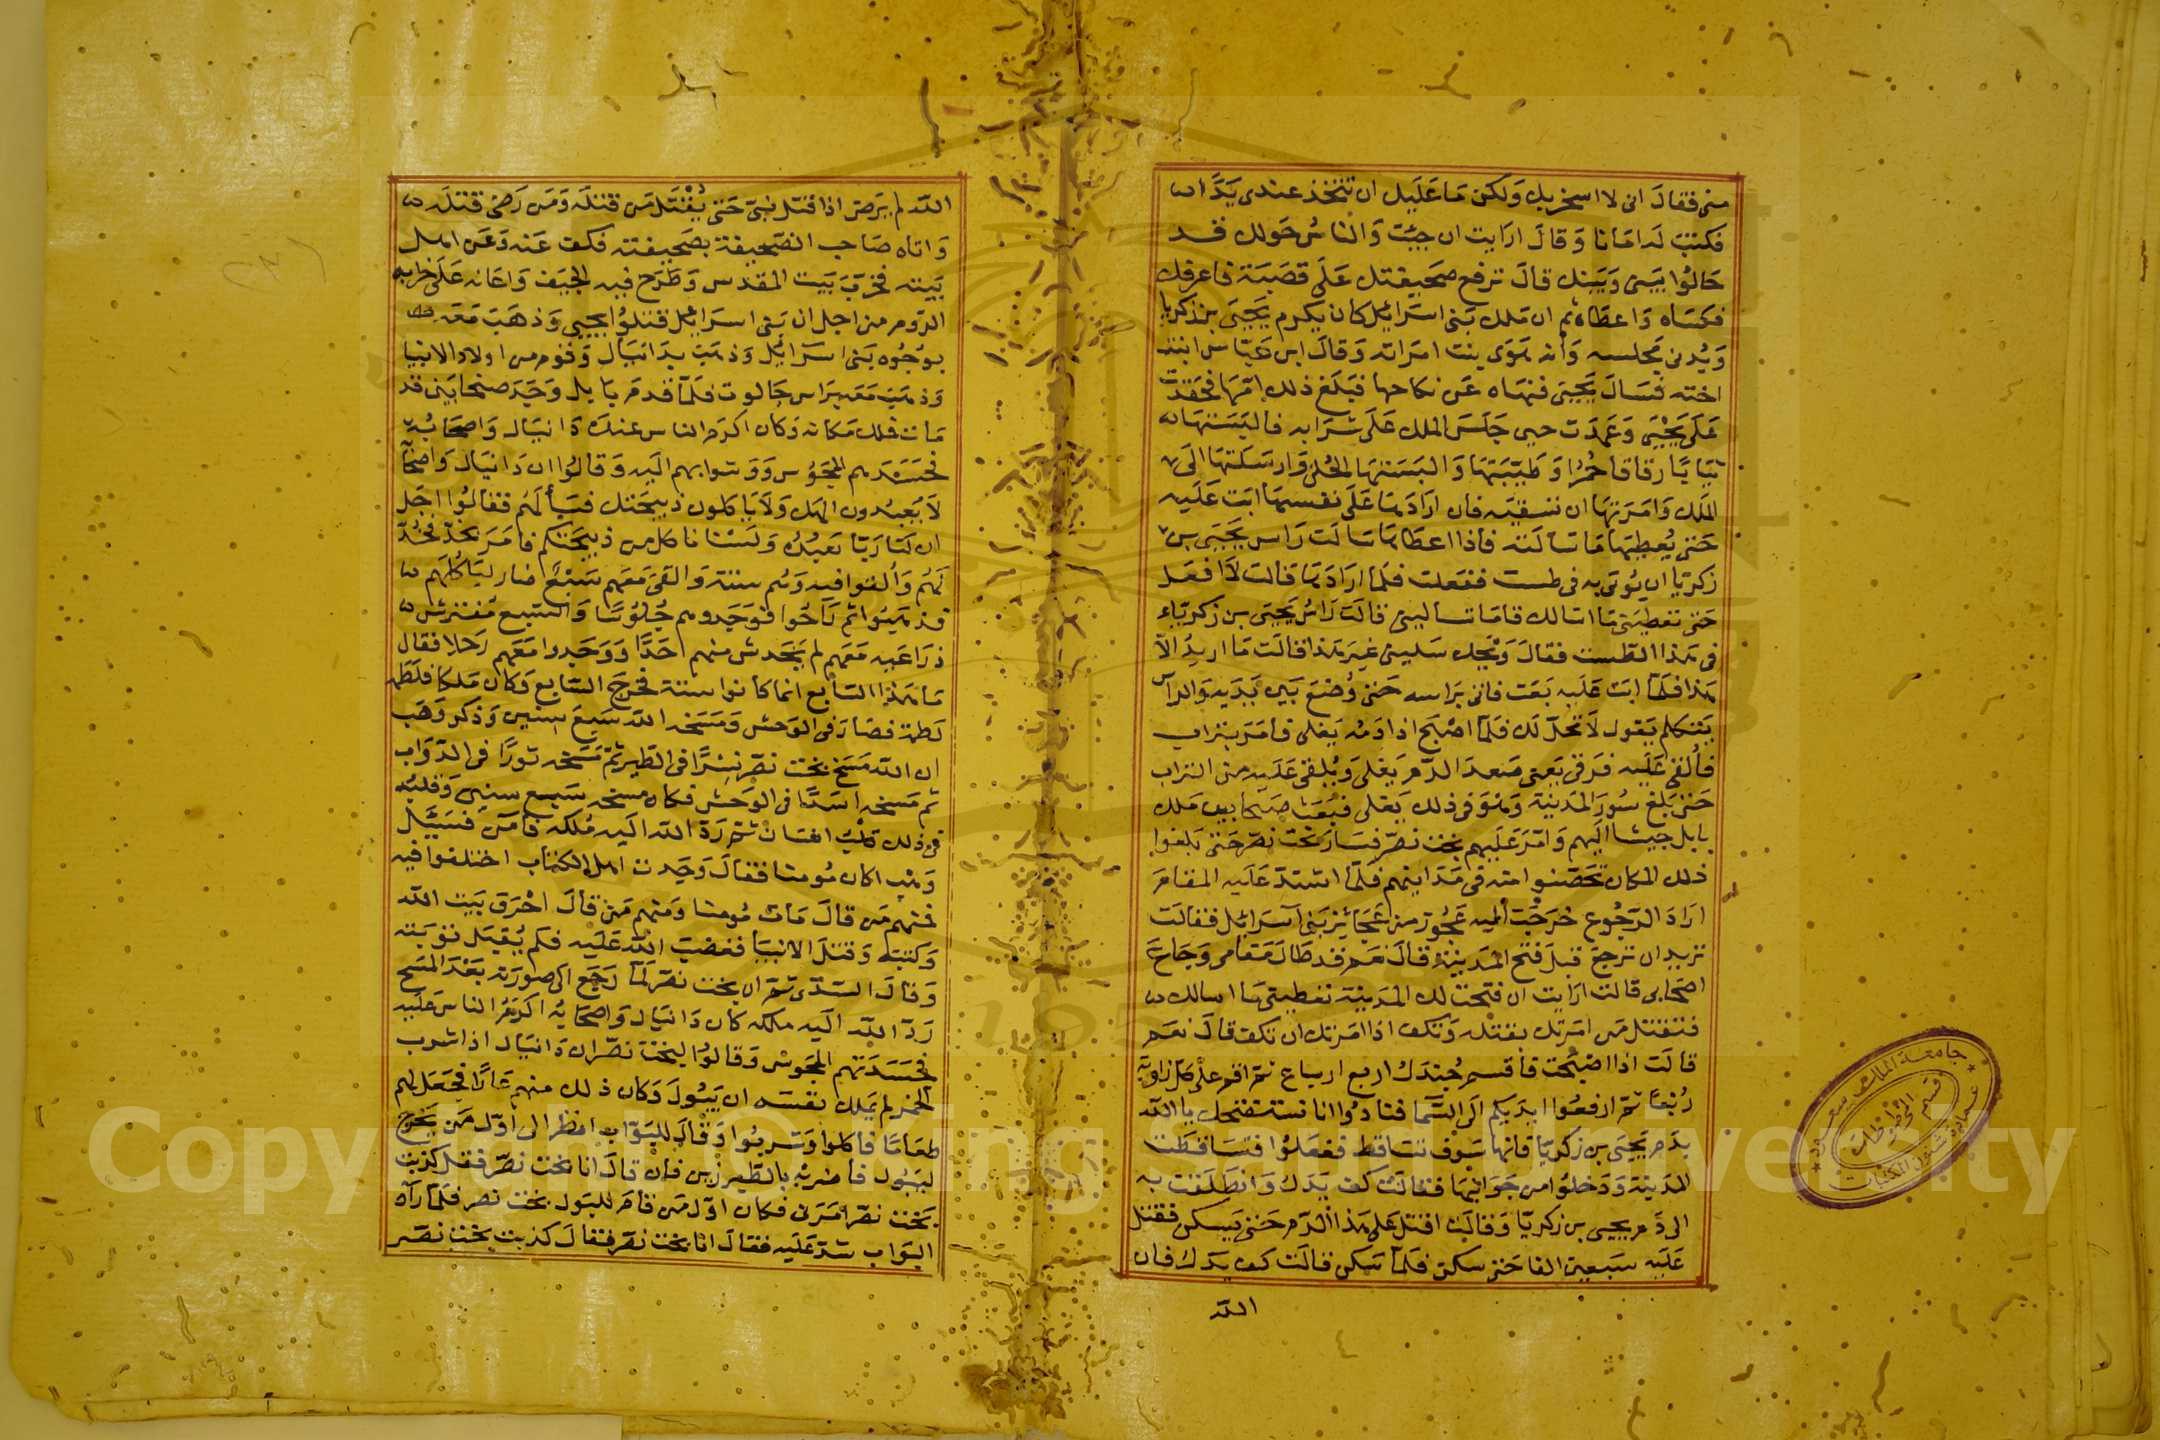 مني فقال اني لا اسخر بك ولكن ما عليك ان تتخذ عندي يدا ان
فكتب له امانا وقال ارايت ان جيت والناس حولك قد
حالوا بيني وبينك قال ترفع صحيفتك على قصبة فاعرفك
فكساه واعطاه ثم ان ملك بني اسرائيل كان يكرم يحيى بن زكريا
ويدني مجلسه وانه هوى بنت امراته وقال ابن عباس ابنت
اخته فسال يحيى فنهاه عن نكاحها فبلغ ذلك امها فحقدت
على يحيى وعمدت حين جلس الملك على شرابه فالبستها
ثيابا رقاقا حمرا وطيبتها والبستها الحلي وارسلتها الى
الملك وامرتها ان تسقيه فان ارادها على نفسها ابت عليه
حتى يعطيها ما سالته فاذا اعطاها سالت راس يحيى بن
زكريا ان يوتى به في طست ففعلت فلما ارادها قالت لا افعل
حتى تعطيني ما اسالك قال ما تساليني قالت راس يحيى بن زكرياء
في هذا الطست فقال ويحك سليني غير هذا قالت ما اريد الا
هذا فلما ابت عليه بعث فاتي براسه حتى وضع بين يديه والراس
يتكلم يقول لا تحل لك فلما اصبح اذا دمه يغلي فامر بتراب
فالقي عليه فرقى يعني صعد الدم يغلي ويلقى عليه من التراب
حتى بلغ سور المدينة وهو في ذلك يغلي فبعث صيحابين ملك
بابل جيشا اليهم وامر عليهم بخت نصر فسار بخت نصر حتى بلغوا
ذلك المكان تحصنوا منه في مداينهم فلما اشتد عليه المقام
اراد الرجوع خرجت اليه عجوز من عجائز بني اسرائيل فقالت
تريد ان ترجع قبل فتح المدينة قال نعم قد طال مقامي وجاع
اصحابي قالت ارايت ان فتحت لك المدينة تعطيني ما اسالك
فتقتل من امرتك بقتله وتكف اذا امرتك ان تكف قال نعم
قالت اذا اصبحت فاقسم جندك اربع ارباع ثم اقم على كل زاوية
ربعا ثم ارفعوا ايديكم الى السما فنادوا انا نستفتحك يا الله
بدم يحيى بن زكريا فانها سوف تتساقط ففعلوا فتساقطت
المدينة ودخلوا من جوانبها فقالت كف يدك وانطلقت به
الى دم يحيى بن زكريا وقالت اقتل على هذا الدم حتى يسكن فقتل
عليه سبعين الفا حتى سكن فلما سكن قالت كف يدك فان
الله
الله لم يرض اذا قتل نبي حتى يقتل من قتله ومن رضي قتله
واتاه صاحب الصحيفة بصحيفته فكف عنه وعن اهل
بيته فخرب بيت المقدس وطرح فيه الجيف واعانه على خرابه
الروم من اجل ان بني اسرائيل قتلوا يحيى وذهب معه
بوجوه بني اسرائيل وذهب بدانيال وقوم من اولاد الانبيا
وذهب معه براس جالوت فلما قدم بابل وجد صيحابين قد
مات فملك مكانه وكان اكرم الناس عنده دانيال واصحابه
فحسدهم المجوس ووشوا بهم اليه وقالوا ان دانيال واصحابه
لا يعبدون الهك ولا ياكلون ذبيحتك فسالهم فقالوا اجل
ان لنا ربا نعبده ولسنا ناكل من ذبيحتكم فامر بخد فخد
لهم والقوا فيه وهم ستة والقى معهم سبع ضار لياكلهم
فذهبوا ثم راحوا فوجدوهم جلوسا والسبع مفترش
ذراعيه معهم لم يخدش منهم احدا ووجدوا معهم رجلا فقال
ما هذا السابع انما كانوا ستة فخرج السابع وكان ملكا فلطمه
لطمة فصار في الوحش ومسخه الله سبع سنين وذكر وهب
ان الله مسخ بخت نصر نسرا في الطير ثم مسخه ثورا في الدواب
ثم مسخه اسدا في الوحش فكان مسخه سبع سنين وقلبه
في ذلك قلب انسان ثم رد الله اليه ملكه فامن فسئيل
وهب اكان مومنا فقال وجدت اهل الكتاب اختلفوا فيه
فمنهم من قال مات مومنا ومنهم من قال احرق بيت الله
وكتبه وقتل الانبيا فغضب الله عليه فلم يقبل توبته
وقال السدى ثم ان بخت نصر لما رجع الى صورته بعد المسخ
رد الله اليه ملكه كان دانيال واصحابه اكرم الناس عليه
فحسدتهم المجوس وقالوا لبخت نصر ان دانيال اذا شرب
الخمر لم يملك نفسه ان يبول وكان ذلك منهم عارا فجعل لهم
طعاما فاكلوا وشربوا وقال للبواب انظر الى اول من يخرج
ليبول فاضربه بالطبرزين فان قال انا بخت نصر فقل كذبت
بخت نصر امرني فكان اول من قام للبول بخت نصر فلما رآه
البواب شد عليه فقال انا بخت نصر فقال كذبت بخت نصر
جامعة الملك سعود
عمادة شئون المكتبات
قسم المخطوطات
Copyright © King Saud University